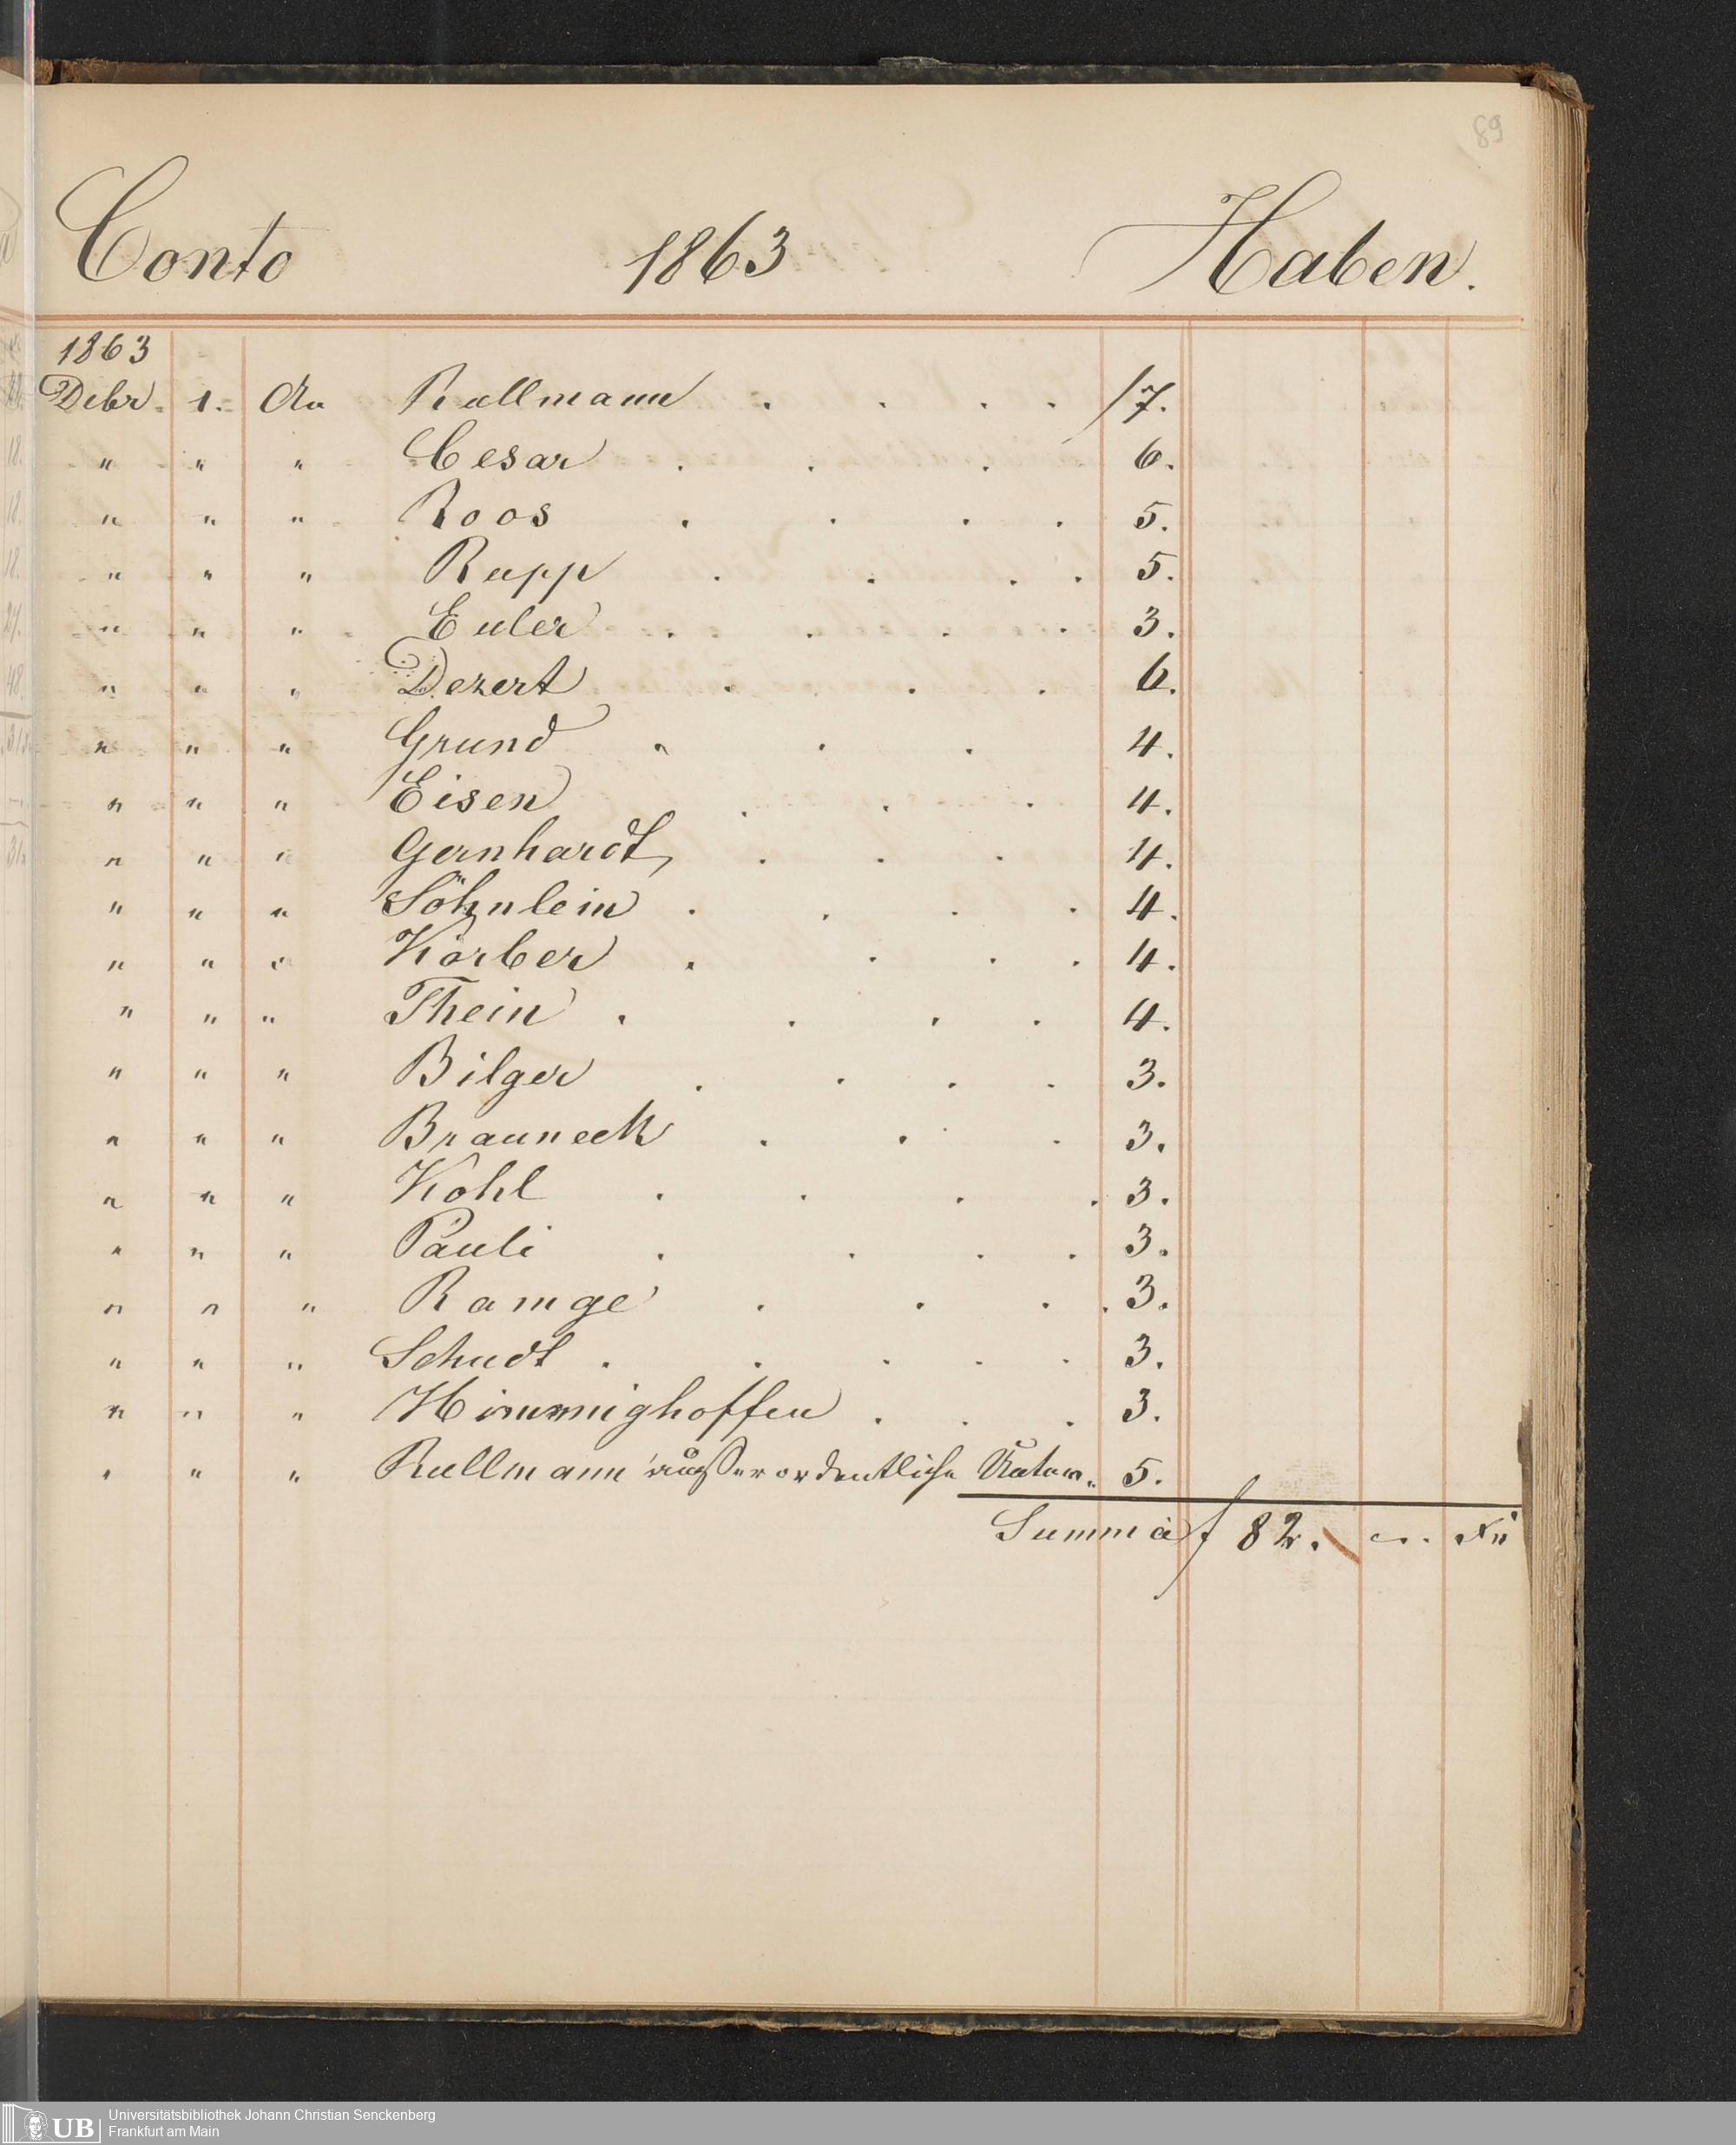 89
Conto 1863 Haben.
1863
Debr. 1. An Rullmann . . . . f 7.
" " " Cesar . . . 6.
" " " Roos . . . . 5.
" " " Rupp . . . . 5.
" " " Euler . . . . 3.
" " " Dezert . . . . 6.
" " " Grund . . . 4.
" " " Eisen . . . 4.
" " " Gernhardt, . . . 4.
" " " Söhnlein . . . . 4.
" " " Körber . . . . 4.
" " " Thein . . . . 4.
" " " Bilger . . . . 3.
" " " Brauneck . . . 3.
" " " Kohl . . . . 3.
" " " Pauli . . . . 3.
" " " Ramge . . . . 3.
" " " Schudt . . . . . 3.
" " " Himmighoffen . . . 3.
" " " Rullmann außerordentliche 5.
Summa f 82.
UB Universitätsbibliothek Johann Christian Senckenberg
Frankfurt am Main